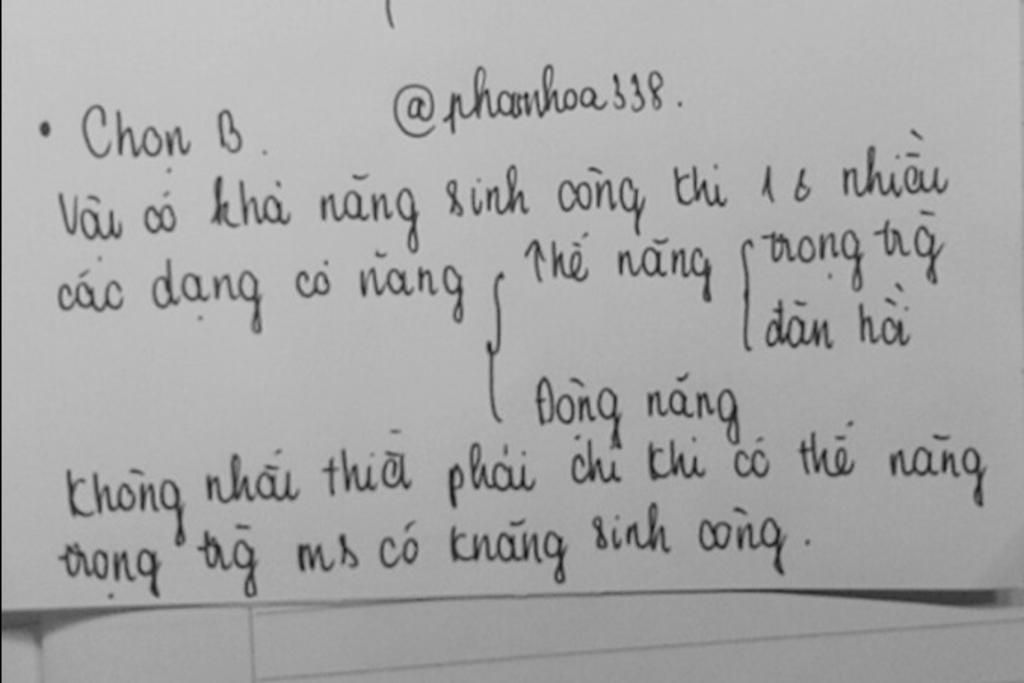 • Chọn B. @phamhoa338.
Vật có khả năng sinh công thì 1 nhiều
các dạng cơ năng { Thế năng { trọng trg
đàn hồi
Động năng
Không nhất thiết phải chỉ khi có thế năng
trọng trg ms có knăng sinh công.